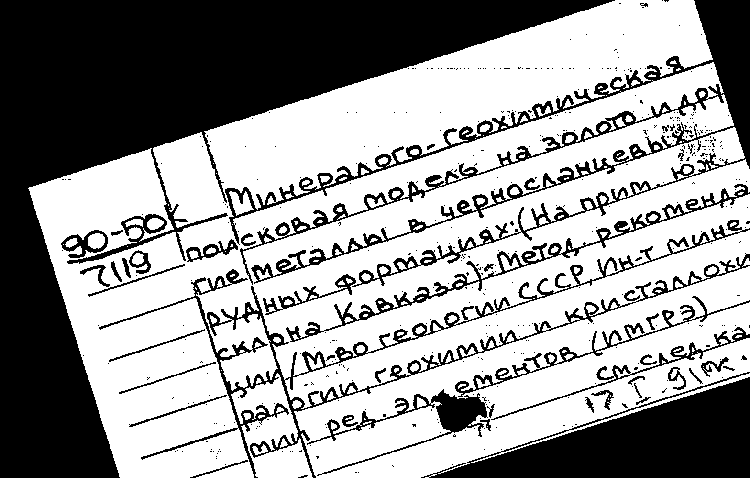 Минералого-геохимическая
90-50к
7119
поисковая модель на золото и дру
гие металлы в черносланцевых
рудных формациях:(На прим. юж.
склона Кавказа):Метод. рекоменда
ции/М-во геологии СССР, Ин-т мине-
ралогии, геохимии и кристаллохи
мии ред. элементов (ИМГРЭ)
см.след.ка
17.I.91